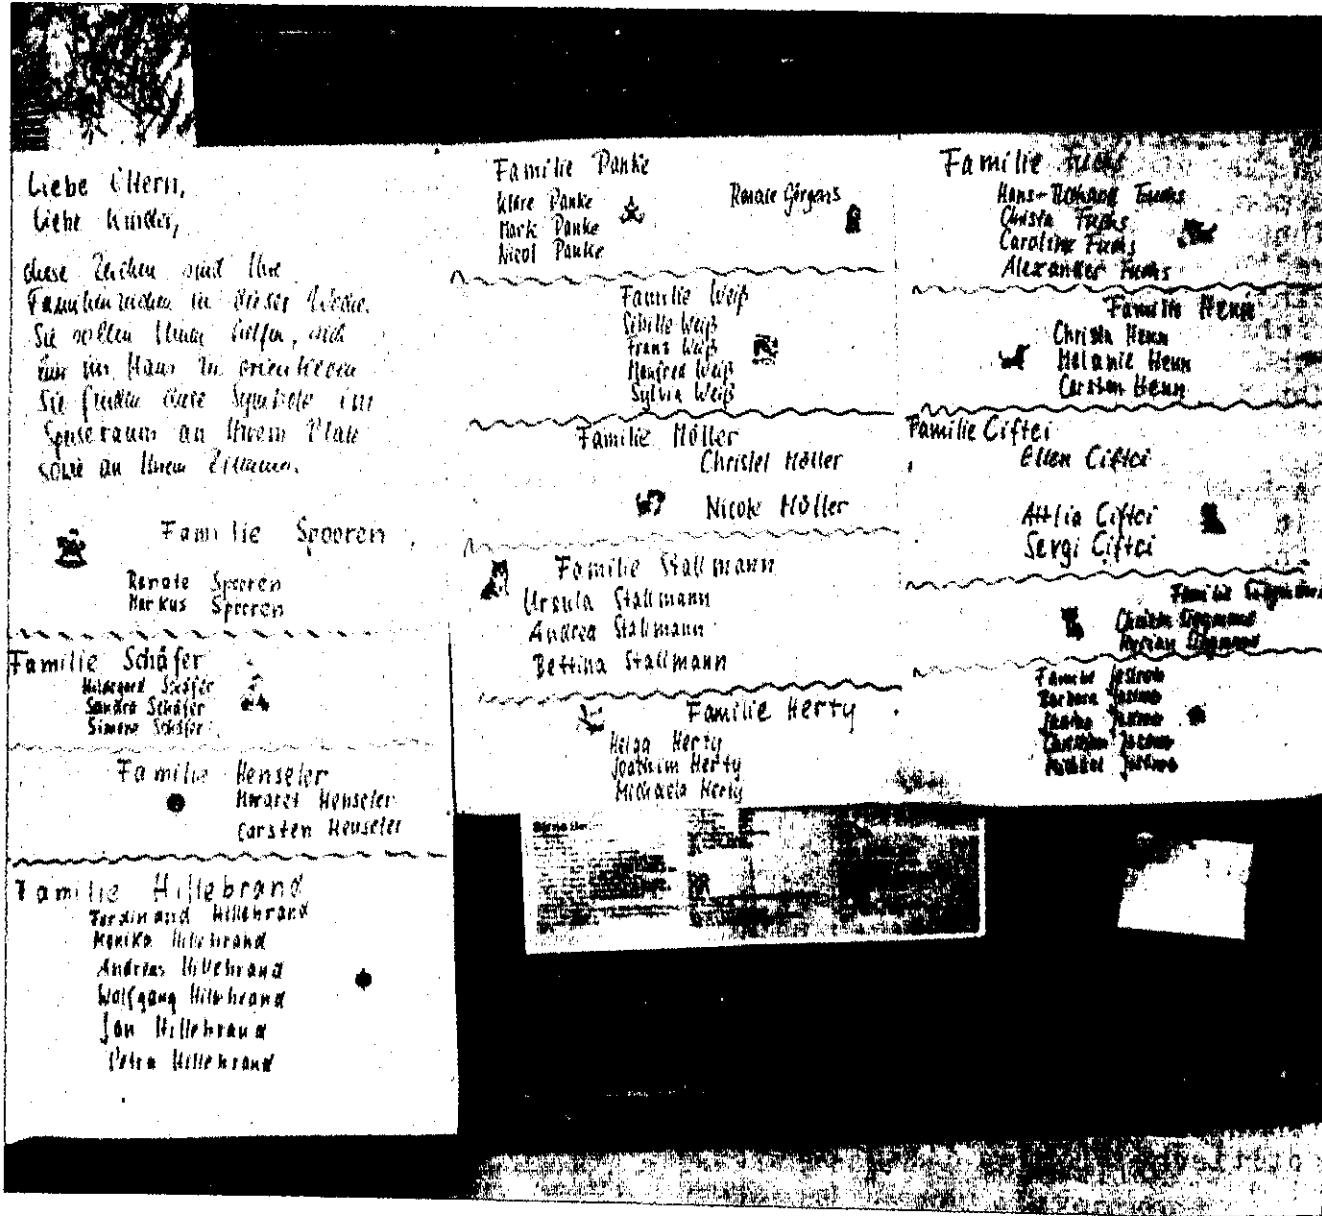 Liebe Eltern,
Liebe Kinder,
diese Zeichen sind Ihre
Familienzeichen in dieser Woche.
Sie sollen Ihnen helfen, sich
im Haus zu orientieren
Sie finden diese Symbole im
Speiseraum an Ihrem Platz
sowie an Ihrem Zimmer.
Familie Spooren
Renate Spooren
Markus Spooren
Familie Schäfer
Hildegard Schäfer
Sandra Schäfer
Simone Schäfer
Familie Henseler
Henseler
Carsten Henseler
Familie Hillebrand
Ferdinand Hillebrand
Monika Hillebrand
Andreas Hillebrand
Wolfgang Hillebrand
Jan Hillebrand
Petra Hillebrand
Familie Panke
Kläre Panke
Mark Panke
Nicol Panke
Renate Görgens
Familie Weiß
Sibille Weiß
Franz Weiß
Manfred Weiß
Sylvia Weiß
Familie Möller
Christel Möller
Nicole Möller
Familie Stallmann
Ursula Stallmann
Andrea Stallmann
Bettina Stallmann
Familie Herty
Helga Herty
Joachim Herty
Michaela Herty
Familie Fuchs
Hans-Richard Fuchs
Christa Fuchs
Caroline Fuchs
Alexander Fuchs
Familie Henn
Christa Henn
Melanie Henn
Carsten Henn
Familie Ciftci
Ellen Ciftci
Attlia Ciftci
Sergi Ciftci
Familie
Familie
Barbara
Christian
Michael